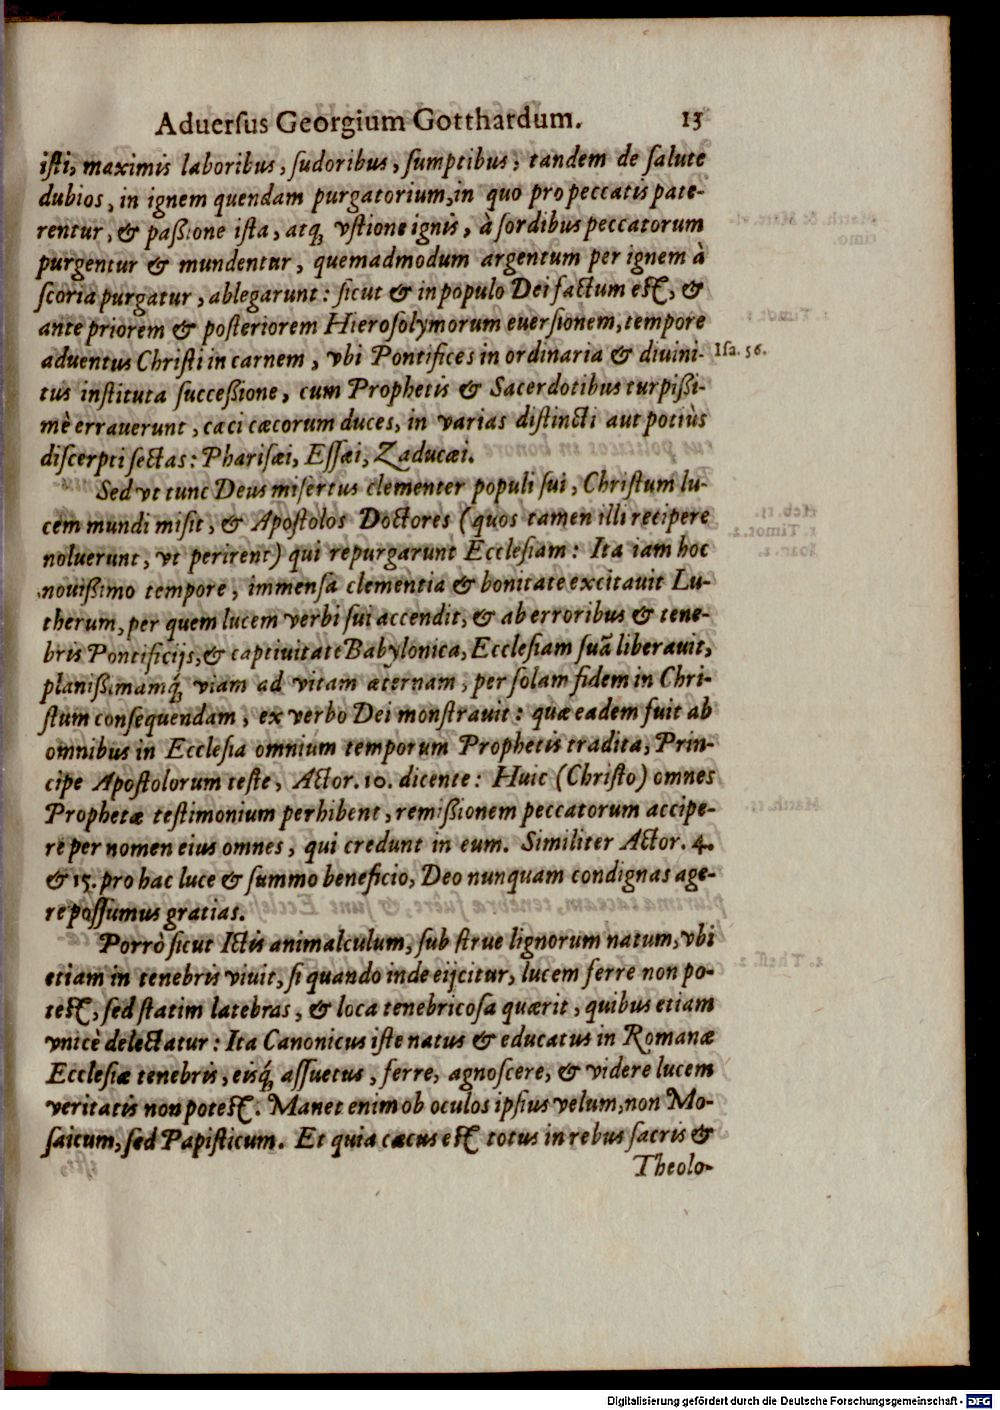 Aduerſus Georgium Gotthardum. 13
iſti, maximis laboribus, ſudoribus, ſumptibus, tandem de ſalute
dubios, in ignem quendam purgatorium, in quo pro peccatis pate-
rentur, & paßione iſta, atq́; vſtione ignis, à ſordibus peccatorum
purgentur & mundentur, quemadmodum argentum per ignem à
ſcoria purgatur, ablegarunt: ſicut & in populo Dei factum eſt, &
ante priorem & poſteriorem Hieroſolymorum euerſionem, tempore
aduentus Chriſti in carnem, vbi Pontifices in ordinaria & diuini-
Iſa. 56.
tus inſtituta ſucceßione, cum Prophetis & Sacerdotibus turpißi-
mè errauerunt, cæci cæcorum duces, in varias diſtincti aut potiùs
diſcerpti ſectas: Phariſæi, Eſſæi, Zaducæi.
Sed vt tunc Deus miſertus clementer populi ſui, Chriſtum lu-
cem mundi miſit, & Apoſtolos Doctores (quos tamen illi recipere
noluerunt, vt perirent) qui repurgarunt Eccleſiam: Ita iam hoc
nouißimo tempore, immenſa clementia & bonitate excitauit Lu-
therum, per quem lucem verbi ſui accendit, & ab erroribus & tene-
bris Pontificijs, & captiuitate Babylonica, Eccleſiam ſuã liberauit,
planißimamq́; viam ad vitam æternam, per ſolam fidem in Chri-
ſtum conſequendam, ex verbo Dei monſtrauit: quæ eadem fuit ab
omnibus in Eccleſia omnium temporum Prophetis tradita, Prin-
cipe Apoſtolorum teſte, Actor. 10. dicente: Huic (Chriſto) omnes
Prophetæ teſtimonium perhibent, remißionem peccatorum accipe-
re per nomen eius omnes, qui credunt in eum. Similiter Actor. 4.
& 15. pro hac luce & ſummo beneficio, Deo nunquam condignas age-
re poſſumus gratias.
Porrò ſicut Ictis animalculum, ſub ſtrue lignorum natum, vbi
etiam in tenebris viuit, ſi quando inde eijcitur, lucem ferre non po-
teſt, ſed ſtatim latebras, & loca tenebricoſa quærit, quibus etiam
vnicè delectatur: Ita Canonicus iſte natus & educatus in Romanæ
Eccleſiæ tenebris, eisq́; aſſuetus, ferre, agnoſcere, & videre lucem
veritatis non poteſt. Manet enim ob oculos ipſius velum, non Mo-
ſaicum, ſed Papiſticum. Et quia cæcus eſt totus in rebus ſacris &
Theolo-
Digitalisierung gefördert durch die Deutsche Forschungsgemeinschaft - DFG